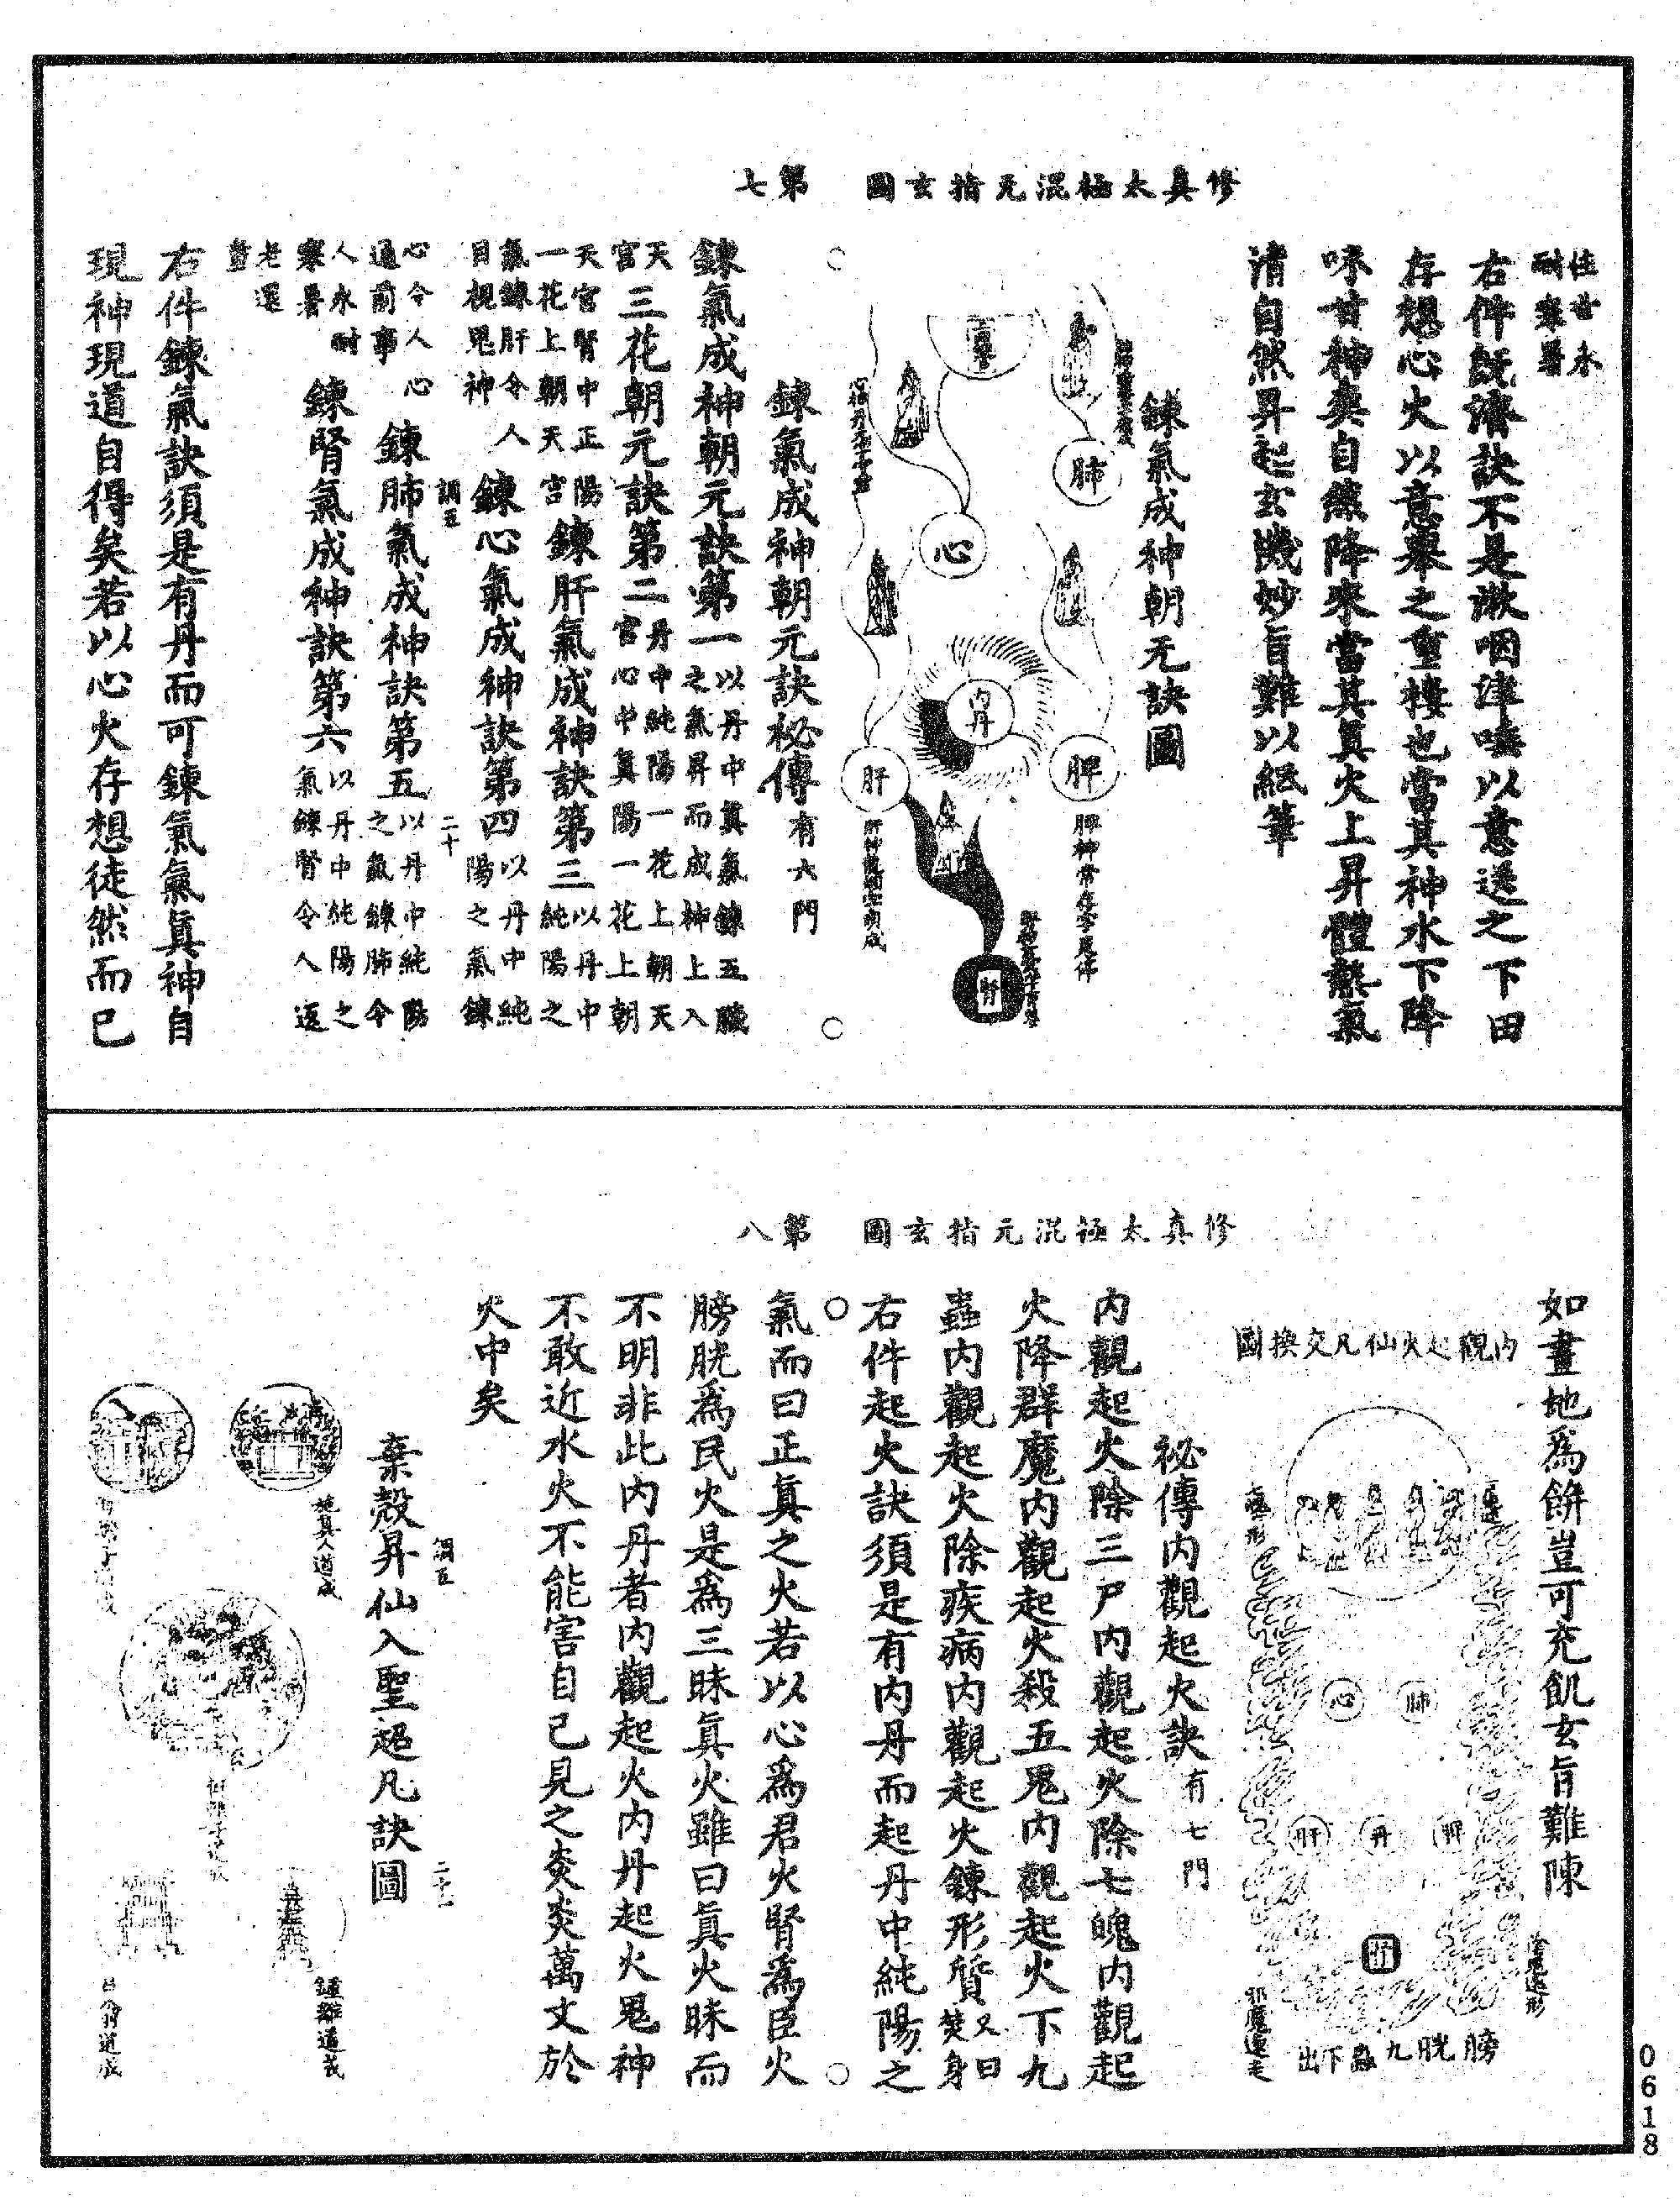 修真太極混元指玄圖　第七
住世永
耐寒暑
右件既濟訣不是漱咽津唾以意送之下田
存想心火以意舉之重樓也當其神水下降
味甘神爽自然降來當其真火上昇體熱氣
清自然昇起玄機妙旨難以紙筆
鍊氣成神朝元訣圖
肺
心
內丹
脾
肝
腎
鍊氣成神朝元訣祕傳有六門
鍊氣成神朝元訣第一以丹中真氣鍊五臟之氣昇而成神上入天
宮三花朝元訣第二丹中純陽一花上朝天宮心中真陽一花上朝
天宮腎中正陽一花上朝天宮鍊肝氣成神訣第三以丹中純陽之
氣鍊肝令人目視鬼神鍊心氣成神訣第四以丹中純陽之氣鍊
心令人心通前事鍊肺氣成神訣第五以丹中純陽之氣鍊肺令
人永耐寒暑鍊腎氣成神訣第六以丹中純陽之氣鍊腎令人返
老還
童
右件鍊氣訣須是有丹而可鍊氣氣真神自
現神現道自得矣若以心火存想徒然而已
修真太極混元指玄圖　第八
如畫地為餅豈可充飢玄旨難陳
內觀起火仙凡交換圖
心
肺
肝
丹
脾
腎
膀胱九蟲下出
祕傳內觀起火訣有七門
內觀起火除三尸內觀起火除七魄內觀起
火降群魔內觀起火殺五鬼內觀起火下九
蟲內觀起火除疾病內觀起火鍊形質又曰焚身
右件起火訣須是有內丹而起丹中純陽之
氣而曰正真之火若以心為君火腎為臣火
膀胱為民火是為三昧真火雖曰真火昧而
不明非此內丹者內觀起火內丹起火鬼神
不敢近水火不能害自己見之炎炎萬丈於
火中矣
棄殼昇仙入聖超凡訣圖
施真人道成
鍾離道成
呂翁道成
0618